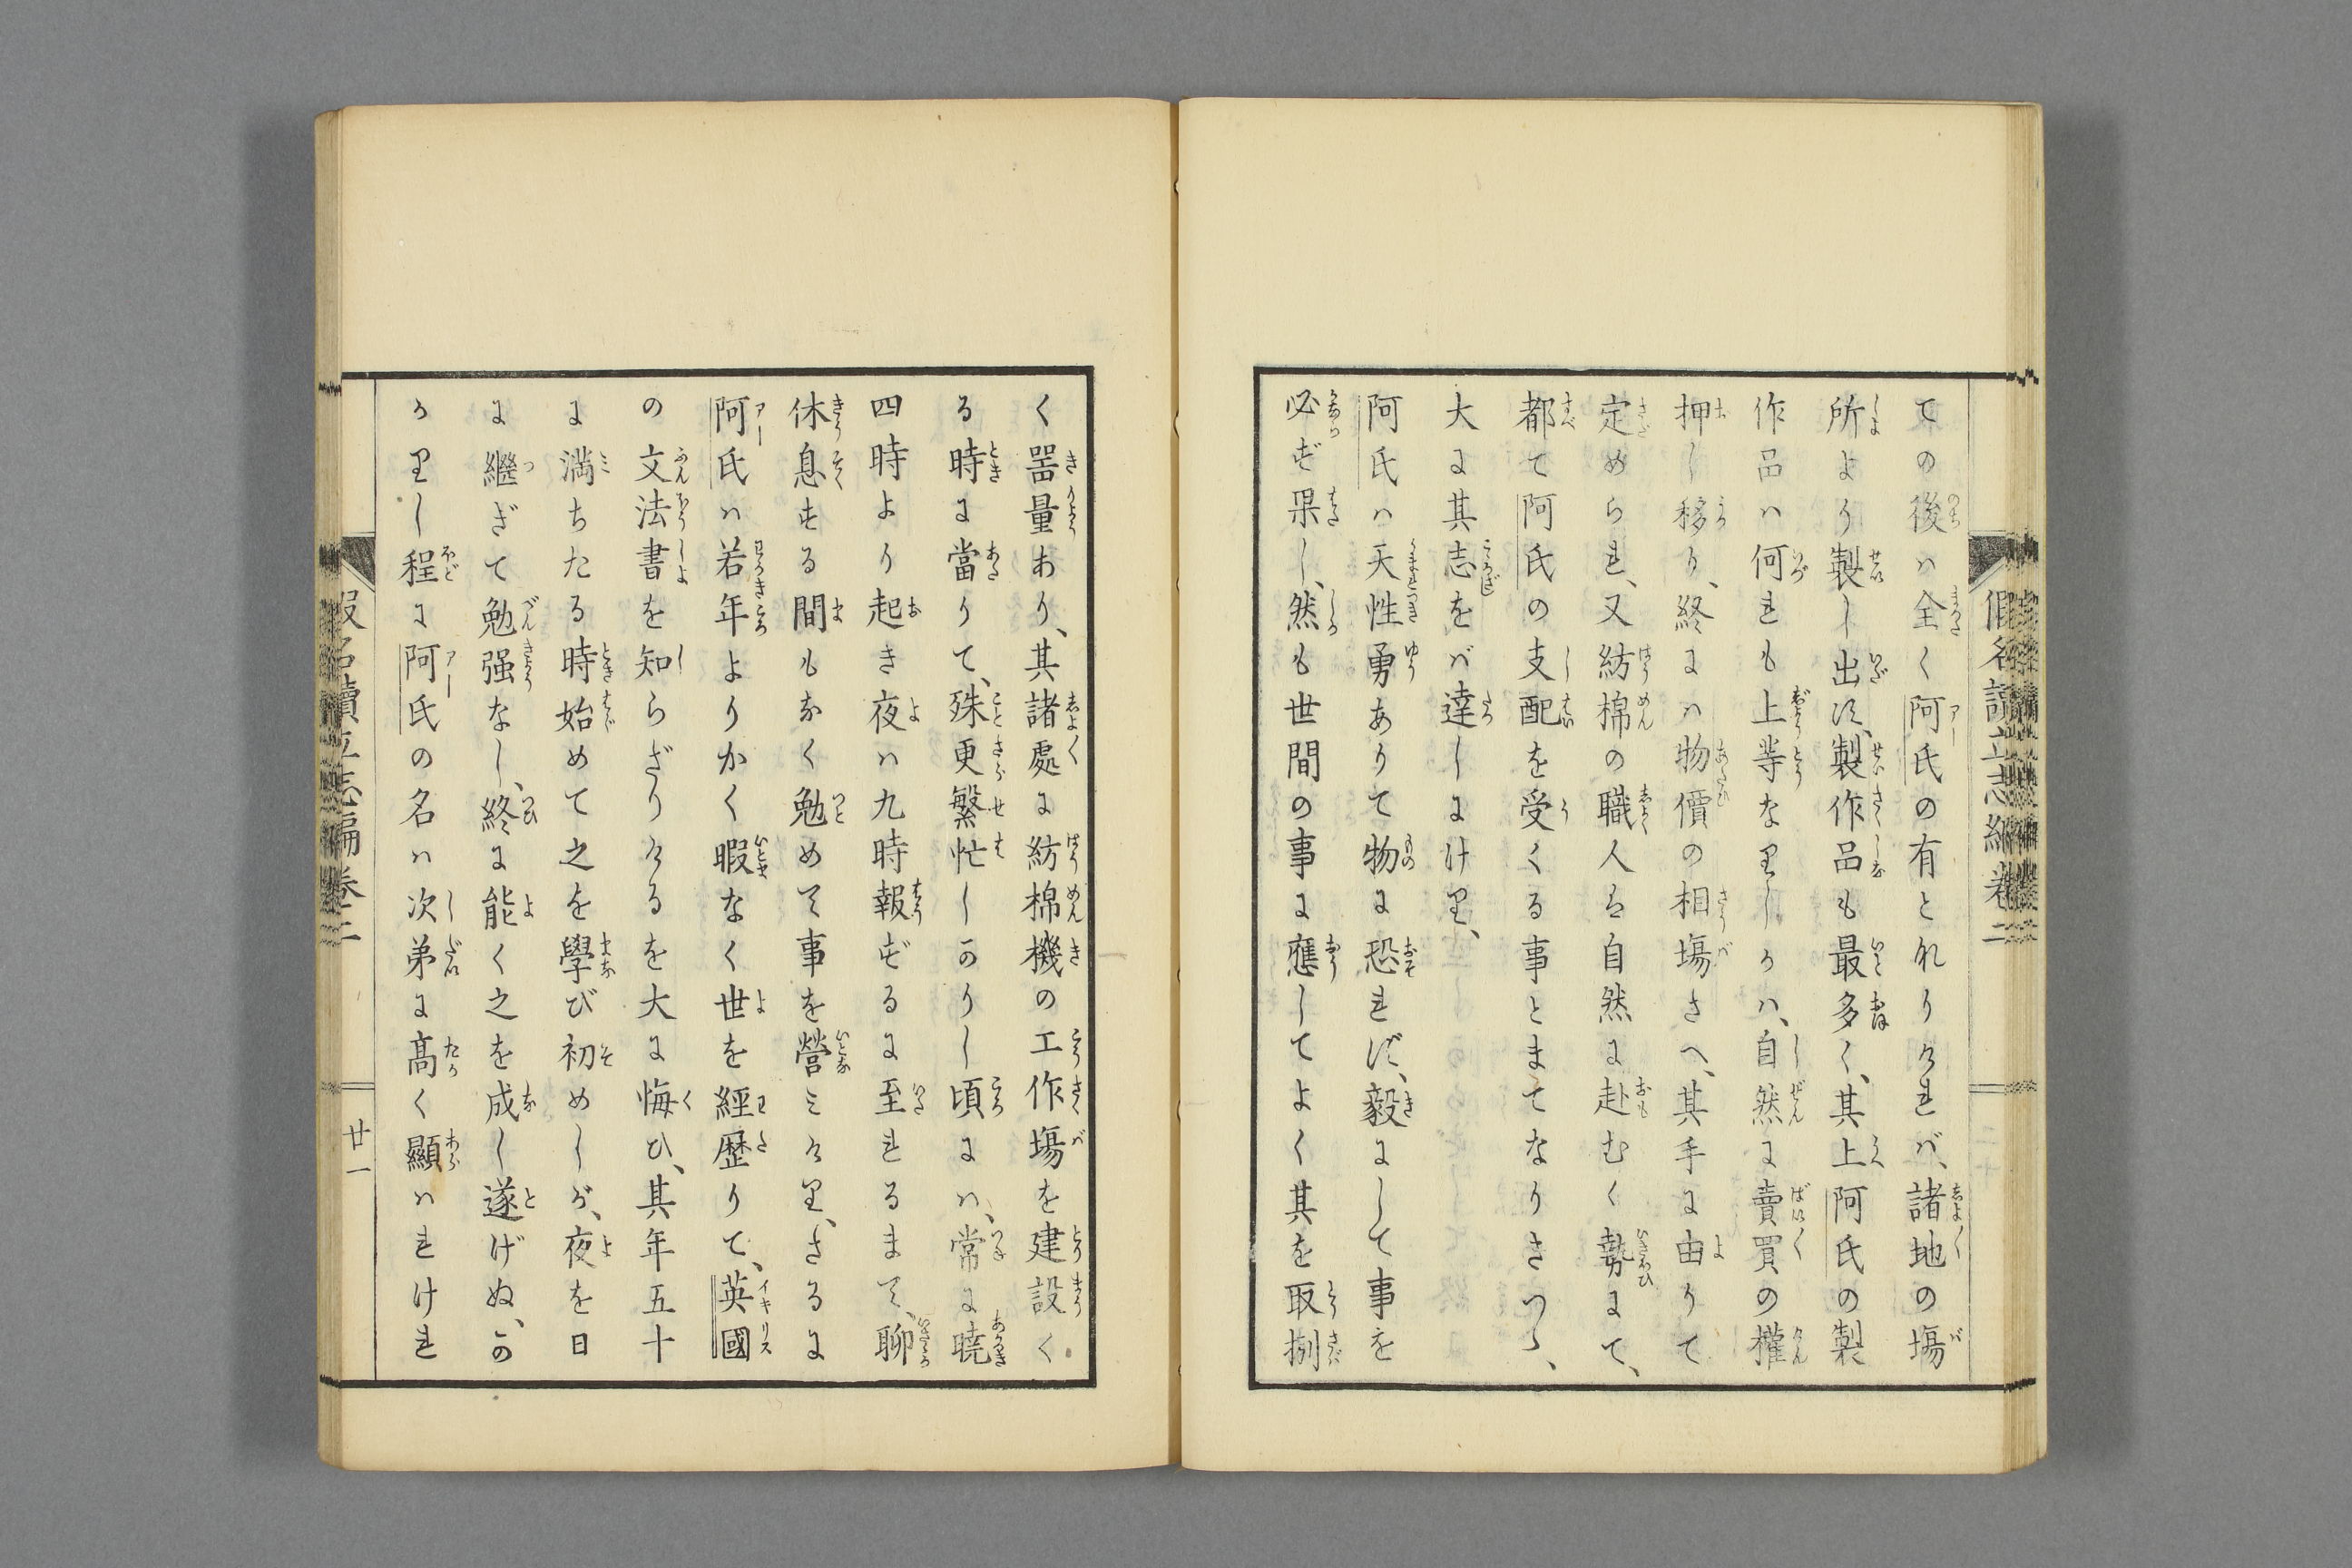 ての後ハ全く阿氏の有となりけれバ、諸地の場
所より製し出ズ、製作品も最多く、其上阿氏の製
作品ハ何れも上等なりしかハ、自然に賣買の權
押し移り、終にハ物價の相場さへ、其手に由りて
定められ、又紡棉の職人も自然に赴むく勢にて、
都て阿氏の支配を受くる事とまてなりさつゝ、
大に其志をバ達しにけり、
阿氏ハ天性勇ありて物に恐れず、毅にして事を
必ず果し、然も世間の事に應してよく其を取捌
く噐量あり、其諸處に紡棉機の工作場を建設く
る時に當りて、殊更繁忙しかりし頃にハ、常に曉
四時より起き夜ハ九時報ずるに至れるまで、聊
休息する間もなく勉めて事を營ミけり、さるに
阿氏ハ若年よりかく暇なく世を經歴りて、英國
の文法書を知らざりけるを大に悔ひ、其年五十
に満ちたる時始めて之を學び初めしが、夜を日
に繼ぎて勉强なし、終に能く之を成し遂げぬ、か
かりし程に阿氏の名ハ次弟に髙く顯ハれけれ
假名讀立志編卷二
廿一